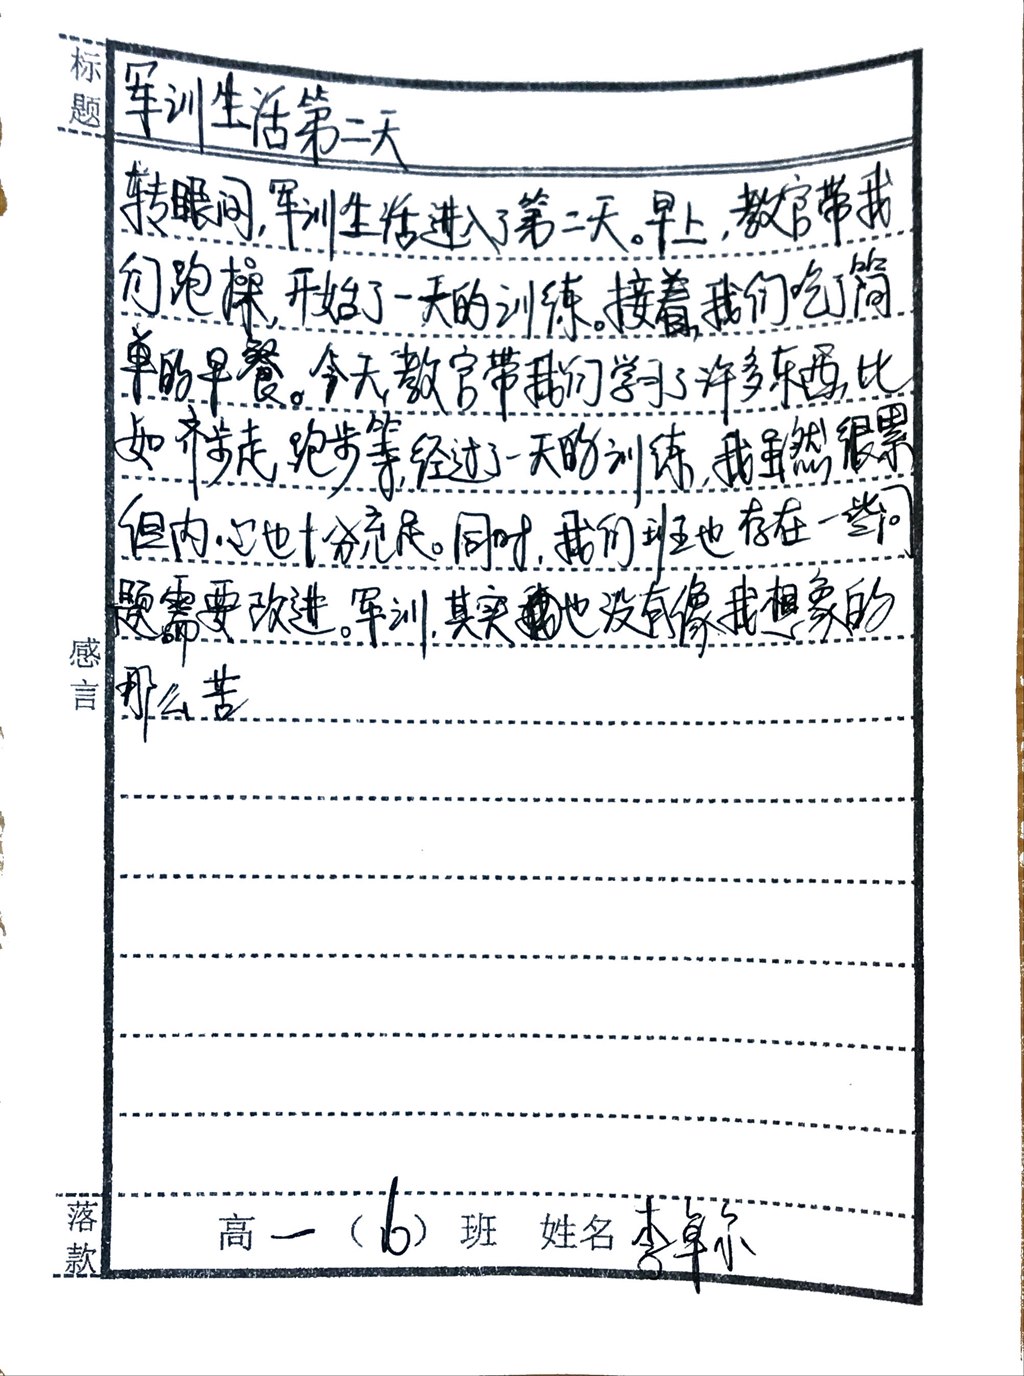 标题
军训生活第二天
转眼间,军训生活进入了第二天。早上,教官带我
们跑操,开始了一天的训练。接着,我们吃了简
单的早餐。今天,教官带我们学习了许多东西,比
如齐步走,跑步等,经过了一天的训练,我虽然很累
但内心也十分充足。同时,我们班也存在一些问
题需要改进。军训,其实也没有像我想象的
那么苦
感言
落款
高一(6)班 姓名 李卓尔